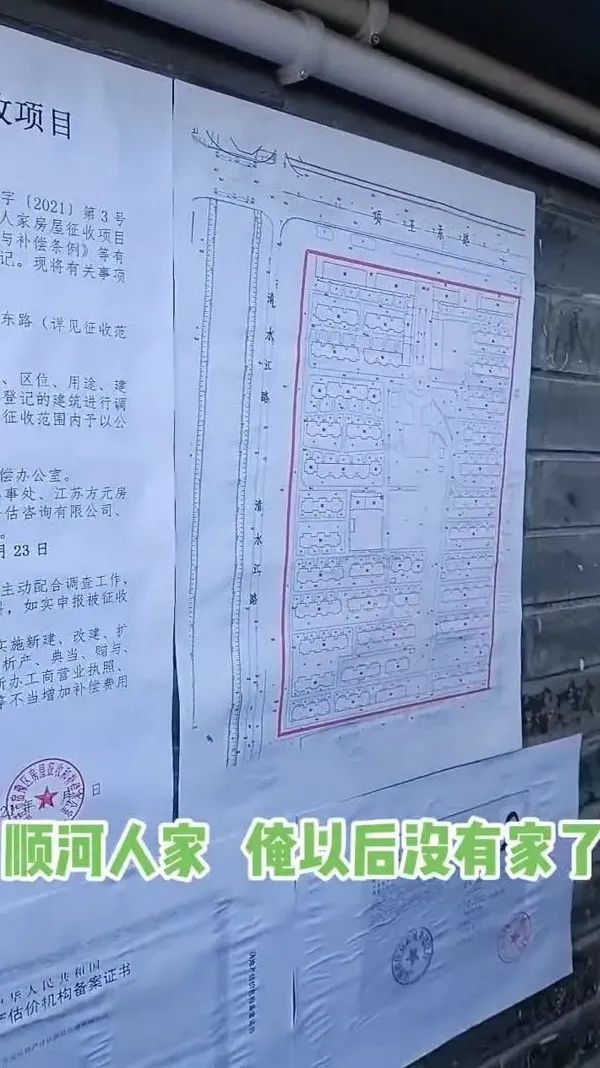 收项目
字〔2021〕第3号
人家房屋征收项目
与补偿条例》等有
记。现将有关事项
东路（详见征收范
、区位、用途、建
登记的建筑进行调
征收范围内予以公
偿办公室。
事处、江苏方元房
估咨询有限公司、
月23日
主动配合调查工作，
，如实申报被征收
实施新建、改建、扩
析产、典当、赠与、
新办工商营业执照、
等不当增加补偿费用
项王东路
清水江路
清水江路
顺河人家 俺以后没有家了
华人民共和国
估价机构备案证书